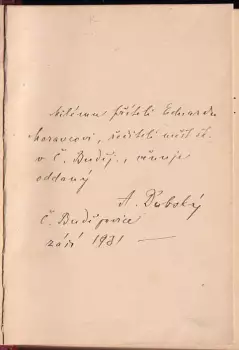 Milému příteli Eduardu
Moravcovi, řediteli měšť. šk.
v Č. Buděj., věnuje
oddaný
A. Dubský
Č. Budějovice
září 1931